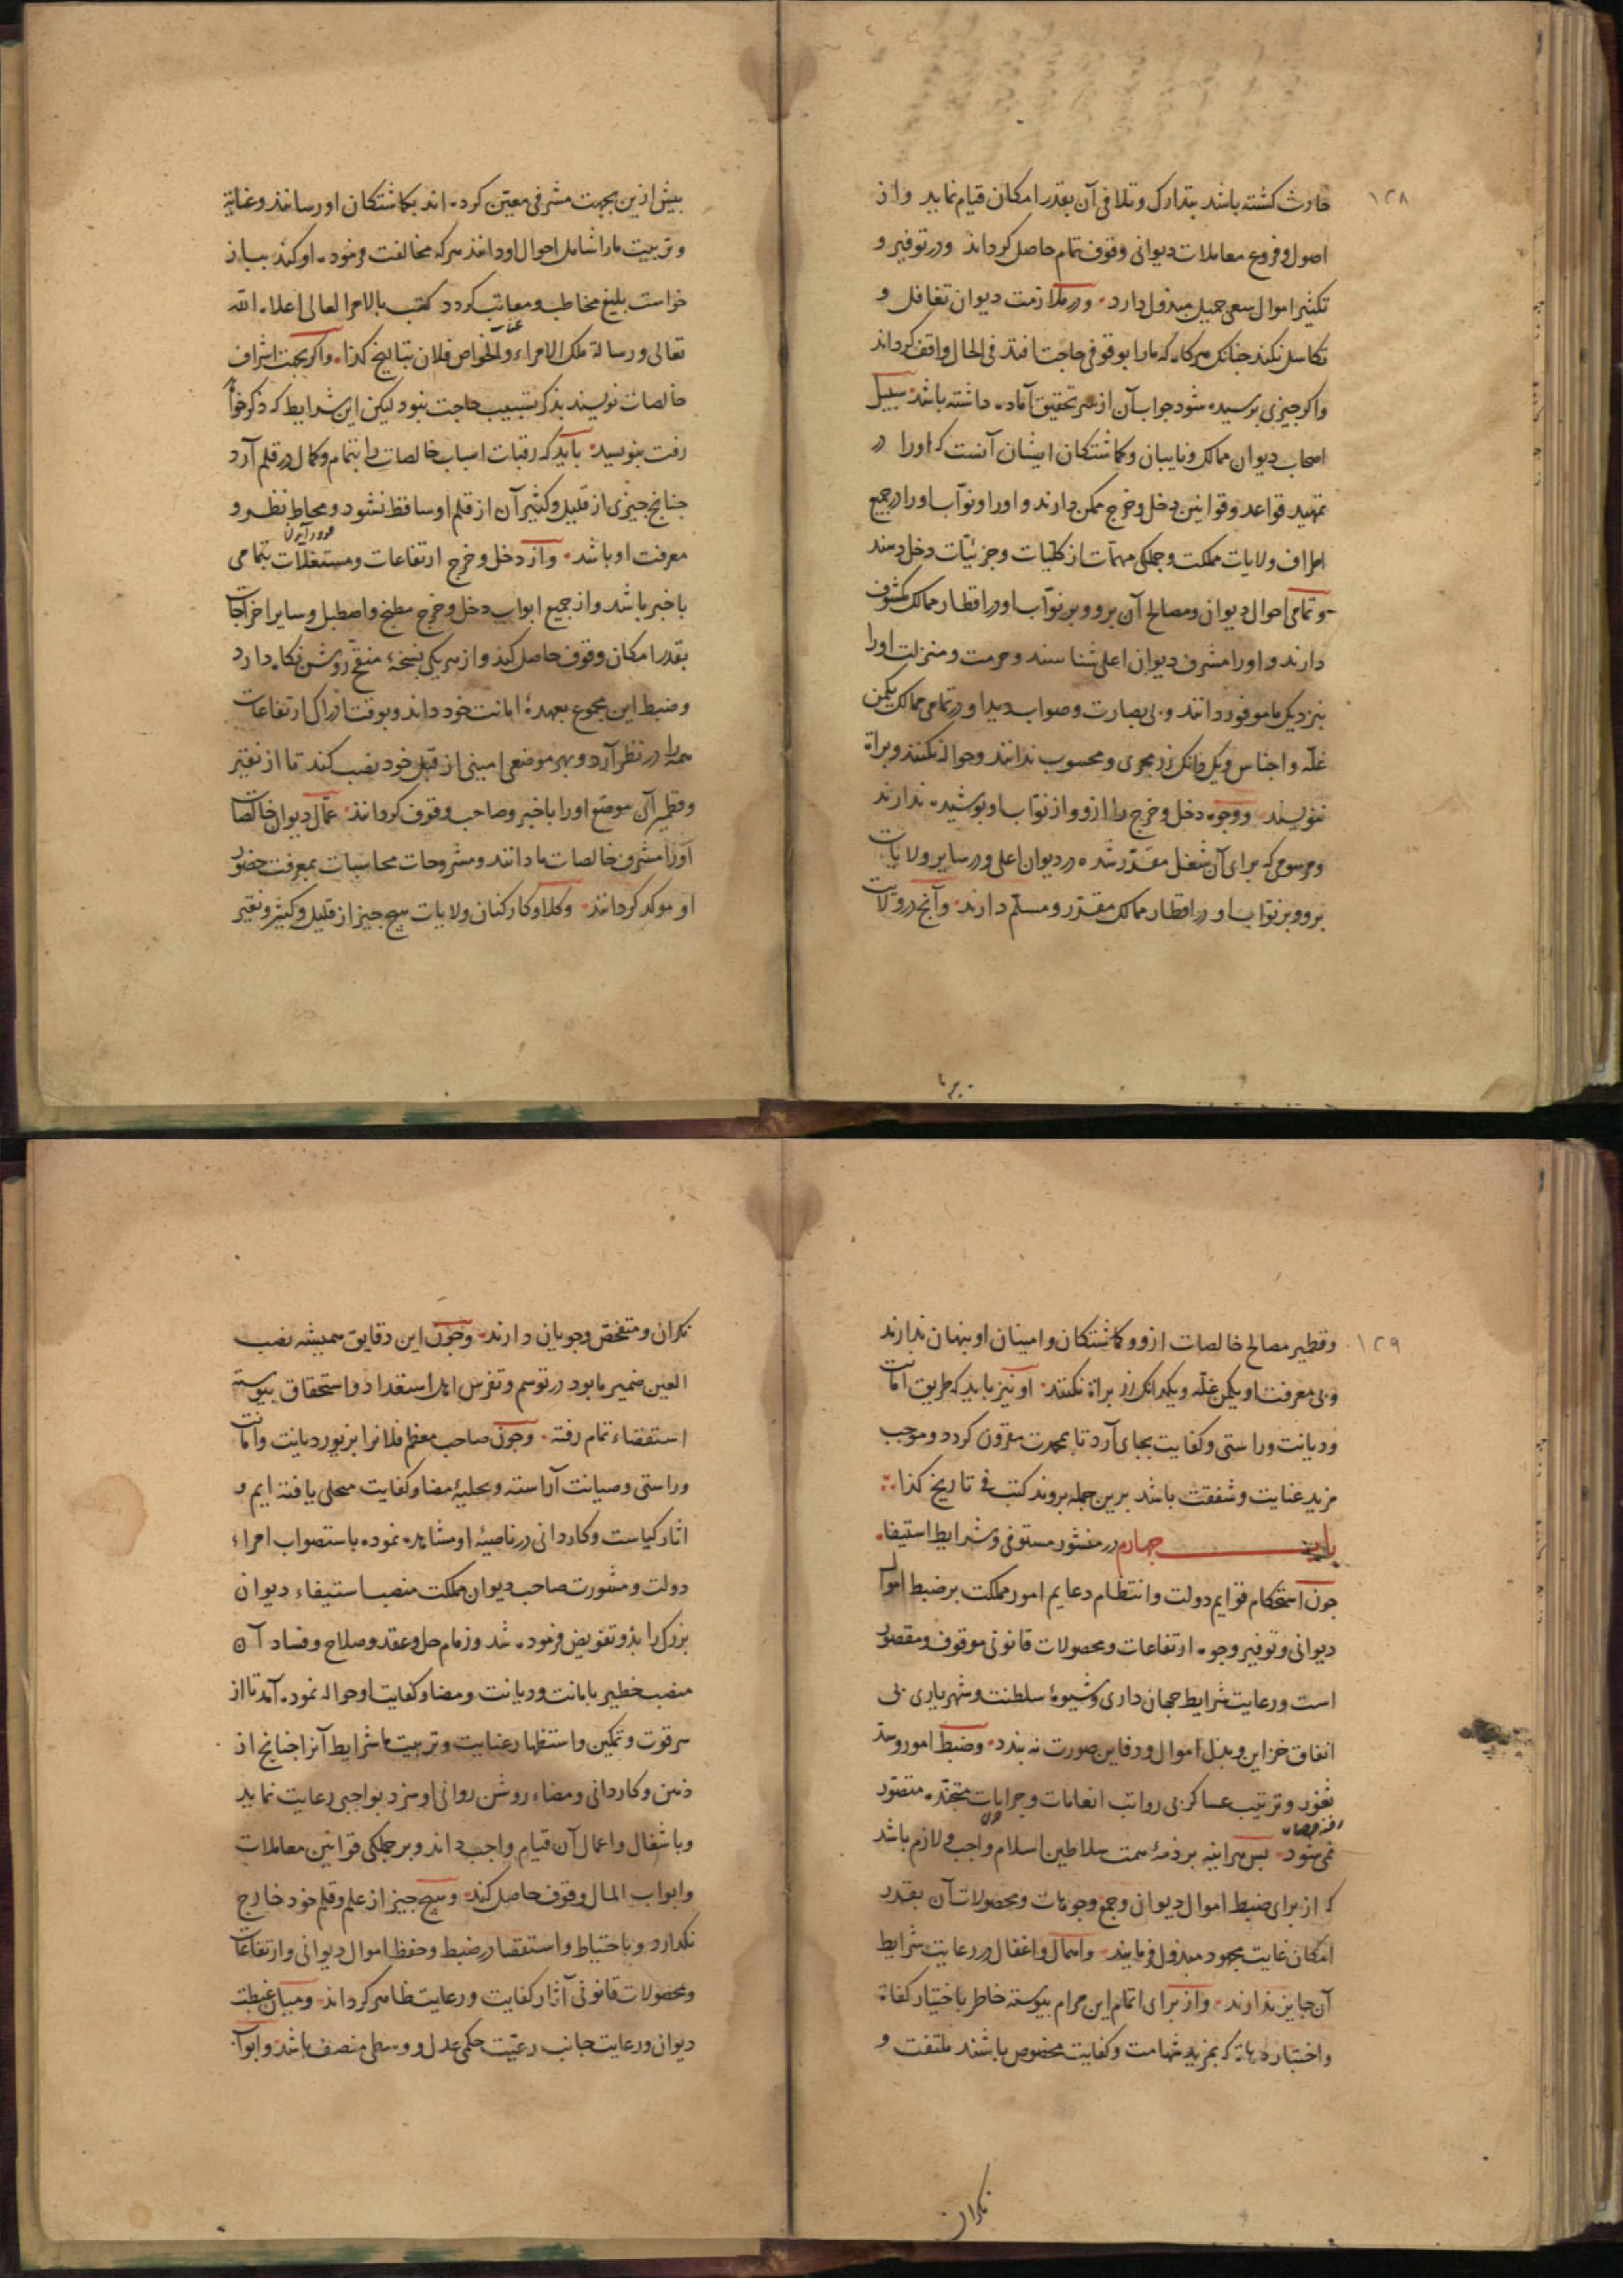 ۱۲۸
حادث کشته باشد بتدارک و تلافی آن بقدر امکان قیام نماید و از
اصول و فروع معاملات دیوانی وقوف تمام حاصل کرداند و در توفیر و
تکثیر اموال سعی جمیل مبذول دارد و در ملازمت دیوان تغافل و
تکاسل نکند جنانک هرکاه که ما را بوقوفی حاجت افتد فی الحال واقف کرداند
و اکر جیزی برسیده شود جواب آن از سر تحقیق آماده داشته باشد سبیل
اصحاب دیوان ممالک و نایبان و کماشتکان ایشان آنست که او را در
تمهید قواعد و قوانین دخل و خرج ممکن دارند و او را و نواب او را در جمیع
اطراف ولایات مملکت و جملکی مهمات از کلیات و جزئیات دخل دهند
و تمامی احوال دیوان و مصالح آن برو و بر نواب او در اقطار ممالک مکشوف
دارند و او را مشرف دیوان اعلی شناسند و حرمت و منزلت او را
بنزدیک ما موفور دانند و بی بصارت و صواب دید او در تمامی ممالک یکمن
غله و اجناس و یک دانک زر مجری و محسوب ندانند و حواله نکنند و براة
ننویسند و وجوه دخل و خرج را ازو و از نواب او بوشیده ندارند
و مرسومی که برای آن شغل مقدر شده در دیوان اعلی و در سایر ولایات
برو و بر نواب او در اقطار ممالک مقدر و مسلم دارند و آنج در ولایت
بیش ازین بجهت مشرفی معین کرده اند بکماشتکان او رسانند و عنایة
و تربیت ما را شامل احوال او دانند هرکه مخالفت فرموده او کند بباز
خواست بلیغ مخاطب و معاتب کردد کتب بالامر العالی اعلاه الله
تعالی و رسالة ملک الامراء و الخواص فلان بتاریخ کذا و اکر بجهت اشراف
خالصات نویسند بذکر تشبیب حاجت نبود لیکن این شرایط که ذکر خواهد
رفت بنویسد باید که رقبات اسباب خالصات را بتمام و کمال در قلم آرد
جنانج جیزی از قلیل و کثیر آن از قلم او ساقط نشود و محاط نظر و
معرفت او باشد و از دخل و خرج ارتفاعات و مستغلات بتمامی
با خبر باشد و از جمیع ابواب دخل و خرج مطبخ و اصطبل و سایر اخراجات
بقدر امکان وقوف حاصل کند و از هر یکی نسخهٔ منقح روشن نکاه دارد
و ضبط این مجموع بعهدهٔ امانت خود داند و بوقت ادراک ارتفاعات
همه را در نظر آرد و بهر موضعی امینی از قبل خود نصب کند تا از نقیر
و قطمیر آن موضع او را با خبر و صاحب وقوف کردانند عمال دیوان خالصات
او را مشرف خالصات ما دانند و مشروحات محاسبات بمعرفت حضور
او موکد کردانند و کلا و کارکنان ولایات هیج جیز از قلیل و کثیر و نقیر
۱۲۹
و قطمیر مصالح خالصات ازو و کماشتکان و امینان او بنهان ندارند
و بی معرفت او یکمن غله و یکدانک زر براة نکنند او نیز باید که طریق امانت
و دیانت و راستی و کفایت بجای آرد تا بمحمدت مقرون کردد و موجب
مزید عنایت و شفقت باشد برین جمله بروند کتب فی تاریخ کذا
باب جهارم در منشور مستوفی و شرایط استیفا
جون استحکام قوایم دولت و انتظام دعایم امور مملکت بر ضبط اموال
دیوانی و توفیر وجوه ارتفاعات و محصولات قانونی موقوف و مقصور
است و رعایت شرایط جهان داری و شیوهٔ سلطنت و شهریاری بی
انفاق خزاین و بذل اموال و دفاین صورت نه بندد و ضبط امور و سد
ثغور و ترتیب عساکر بی رواتب انعامات و جرایات متجنده متصور
نمی شود بس هراینه بر ذمهٔ همت سلاطین اسلام واجب و لازم باشد
که از برای ضبط اموال دیوان و جمع وجوهات و محصولات آن بقدر
امکان غایت مجهود مبذول فرمایند و اهمال و اغفال در رعایت شرایط
آن جایز ندارند و از برای اتمام این مرام بیوسته خاطر باختیار کفاة
و اختبار دهاة که بمزید شهامت و کفایت مخصوص باشند ملتفت و
نکران
نکران و متفحص و جویان دارند و جون این دقایق همیشه نصب
العین ضمیر ما بود در توسم و تفرس اهل استعداد و استحقاق بیوسته
استقصاء تمام رفته و جون صاحب معظم فلانرا بزیور دیانت و امانت
و راستی و صیانت آراسته و بحلیهٔ مضا و کفایت محلی یافته ایم و
اثار کیاست و کاردانی در ناصیهٔ او مشاهده نموده باستصواب امراء
دولت و مشورت صاحب دیوان مملکت منصب استیفاء دیوان
بزرک را بذو تفویض فرموده شد و زمام حل و عقد و صلاح و فساد آن
منصب خطیر بامانت و دیانت و مضا و کفایت او حواله نموده آمد تا از
سر قوت و تمکین و استظهار عنایت و تربیت ما شرایط آنرا جنانج از
ذهن و کاردانی و مضاء روشن روانی او سزد بواجبی رعایت نماید
و باشغال و اعمال آن قیام واجب داند و بر جملکی قوانین معاملات
و ابواب المال وقوف حاصل کند و هیج جیز از علم و قلم خود خارج
نکذارد و باحتیاط و استقصا در ضبط و حفظ اموال دیوانی و ارتفاعات
و محصولات قانونی آثار کفایت و رعایت ظاهر کرداند و میان غبطت
دیوان و رعایت جانب رعیت حکمی عدل و وسطی منصف باشد و ابواب